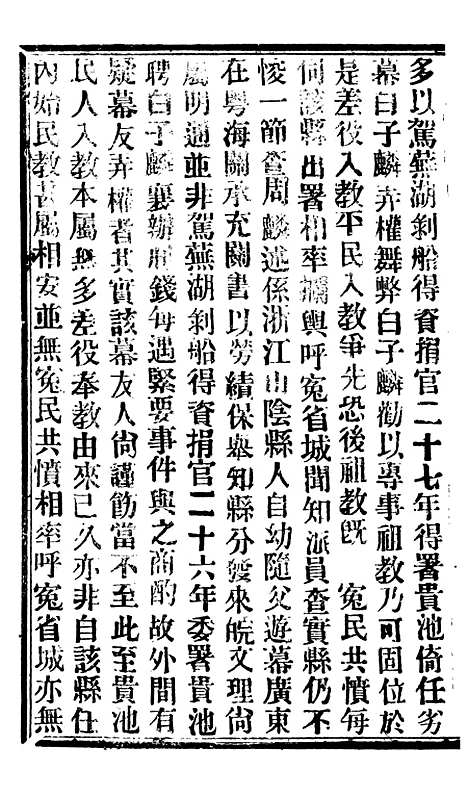 多以駕蕪湖剝船得資捐官二十七年得署貴池倚任劣
幕白子麟弄權舞弊白子麟勸以專事祖教乃可固位於
是差役入教平民入教爭先恐後祖教既　冤民共憤每
伺該縣出署相率攔輿呼冤省城聞知派員查實縣仍不
悛一節查周麟述係浙江山陰縣人自幼隨父遊幕廣東
在粵海關承充關書以勞績保舉知縣分發來皖文理尚
屬明通並非駕蕪湖剝船得資捐官二十六年委署貴池
聘白子麟襄辦刑錢每遇緊要事件與之商酌故外間有
疑幕友弄權者其實該幕友人尚謹飭當不至此至貴池
民人入教本屬無多差役奉教由來已久亦非自該縣任
內始民教甚屬相安並無冤民共憤相率呼冤省城亦無